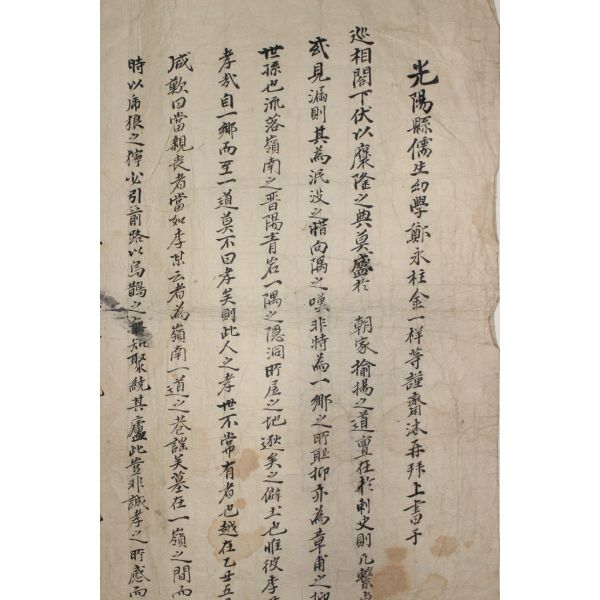 光陽縣儒生幼學鄭永柱金一祥等謹齋沐再拜上書于
巡相閤下伏以褒隆之典莫盛於 朝家揄揚之道亶在於刺史則凡繫
或見漏則其為泯沒之暗向隅之嘆非特為一鄉之所耻抑亦為章甫之抑
世孫也流落嶺南之晋陽青岩一隅之隱洞所居之地逖矣之僻土也惟彼李
孝哉自一鄉而至一道莫不曰孝矣則此人之孝世不常有者也越在乙丑五
咸歎曰當親喪者當如李某云者為嶺南一道之巷謠矣墓在一嶺之間而
時以虎狼之獰必引前路以烏鵲之無知聚繞其廬此豈非誠孝之所感而